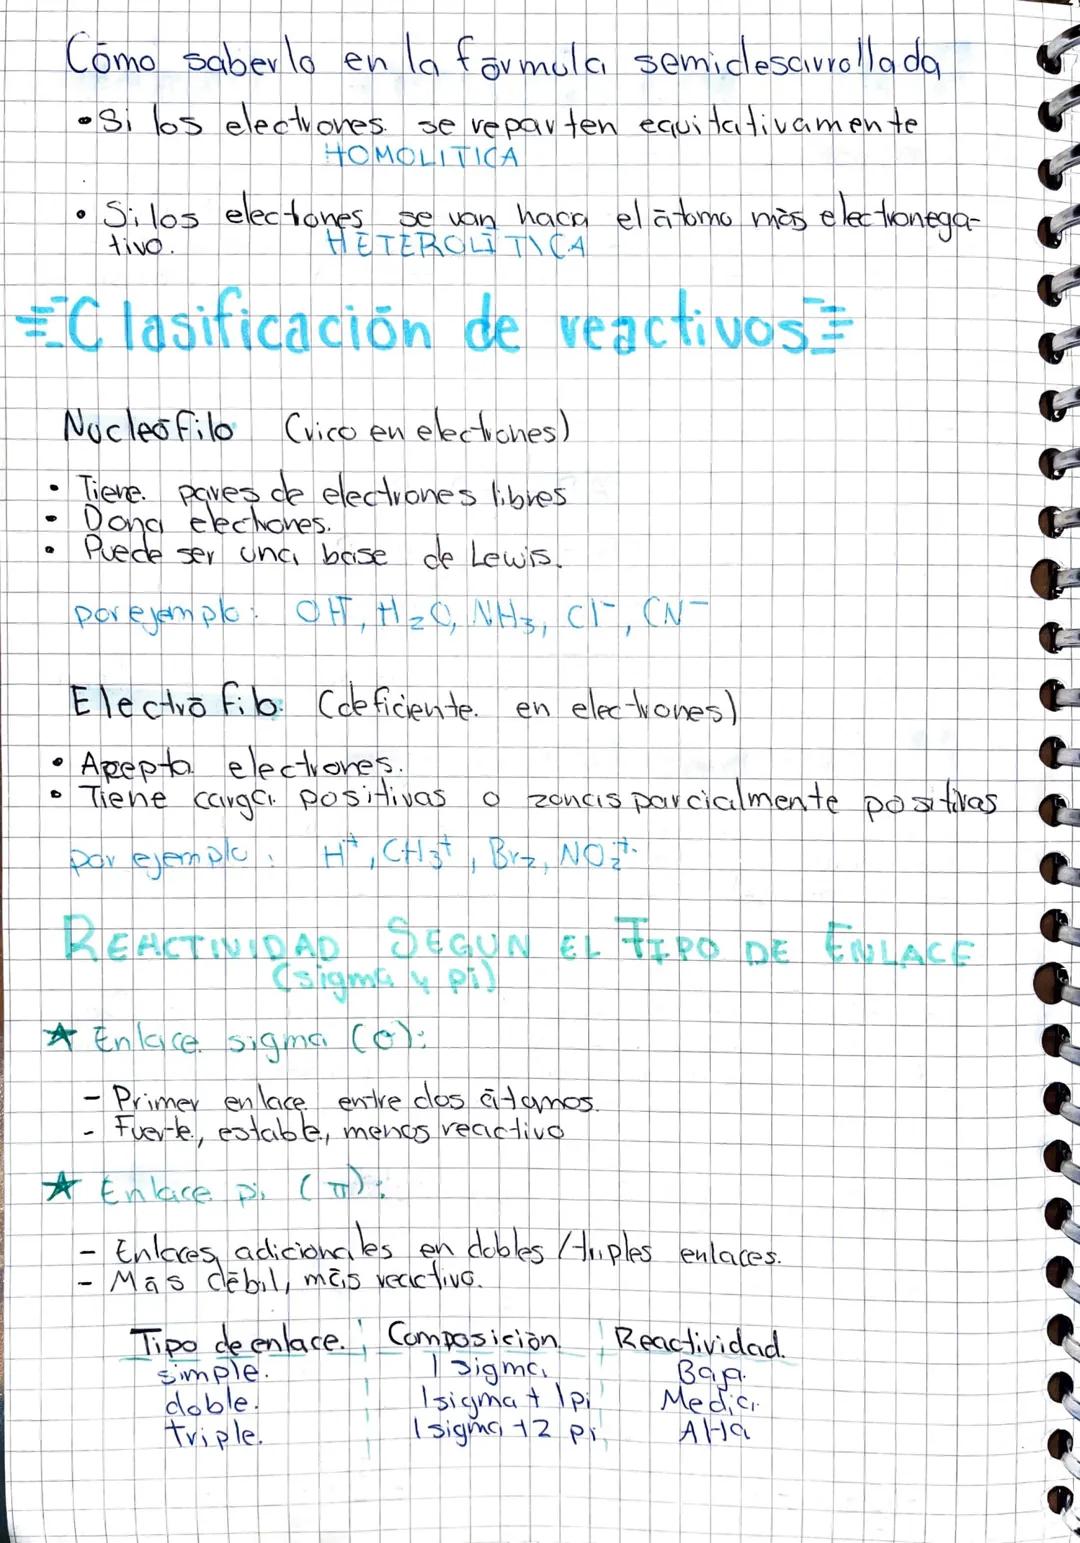 Cómo saberlo en la fórmula semidesarrollada
• Si los electrones se reparten equitativamente
HOMOLITICA
• Si los electones se van haca el átomo más electronega-
tivo. HETEROLÍTICA
Clasificación de reactivos
Nucleófilo (rico en electrones)
• Tiene pares de electrones libres
• Dona electrones.
• Puede ser una base de Lewis.
por ejemplo: OH⁻, H₂O, NH₃, Cl⁻, CN⁻
Electrófilo (deficiente en electrones)
• Apepta electrones.
• Tiene carga positivas o zonas parcialmente positivas
por ejemplo: H⁺, CH₃⁺, Br₂, NO₂⁺
REACTIVIDAD SEGUN EL TIPO DE ENLACE
(sigma y pi)
★ Enlace sigma (σ):
- Primer enlace entre dos átomos.
- Fuerte, estable, menos reactivo
★ Enlace pi (π):
- Enlaces adicionales en dobles/triples enlaces.
- Más débil, más reactivo.
Tipo de enlace. Composición. Reactividad.
simple. 1 sigma. Baja.
doble. 1 sigma + 1 pi Media.
triple. 1 sigma + 2 pi Alta